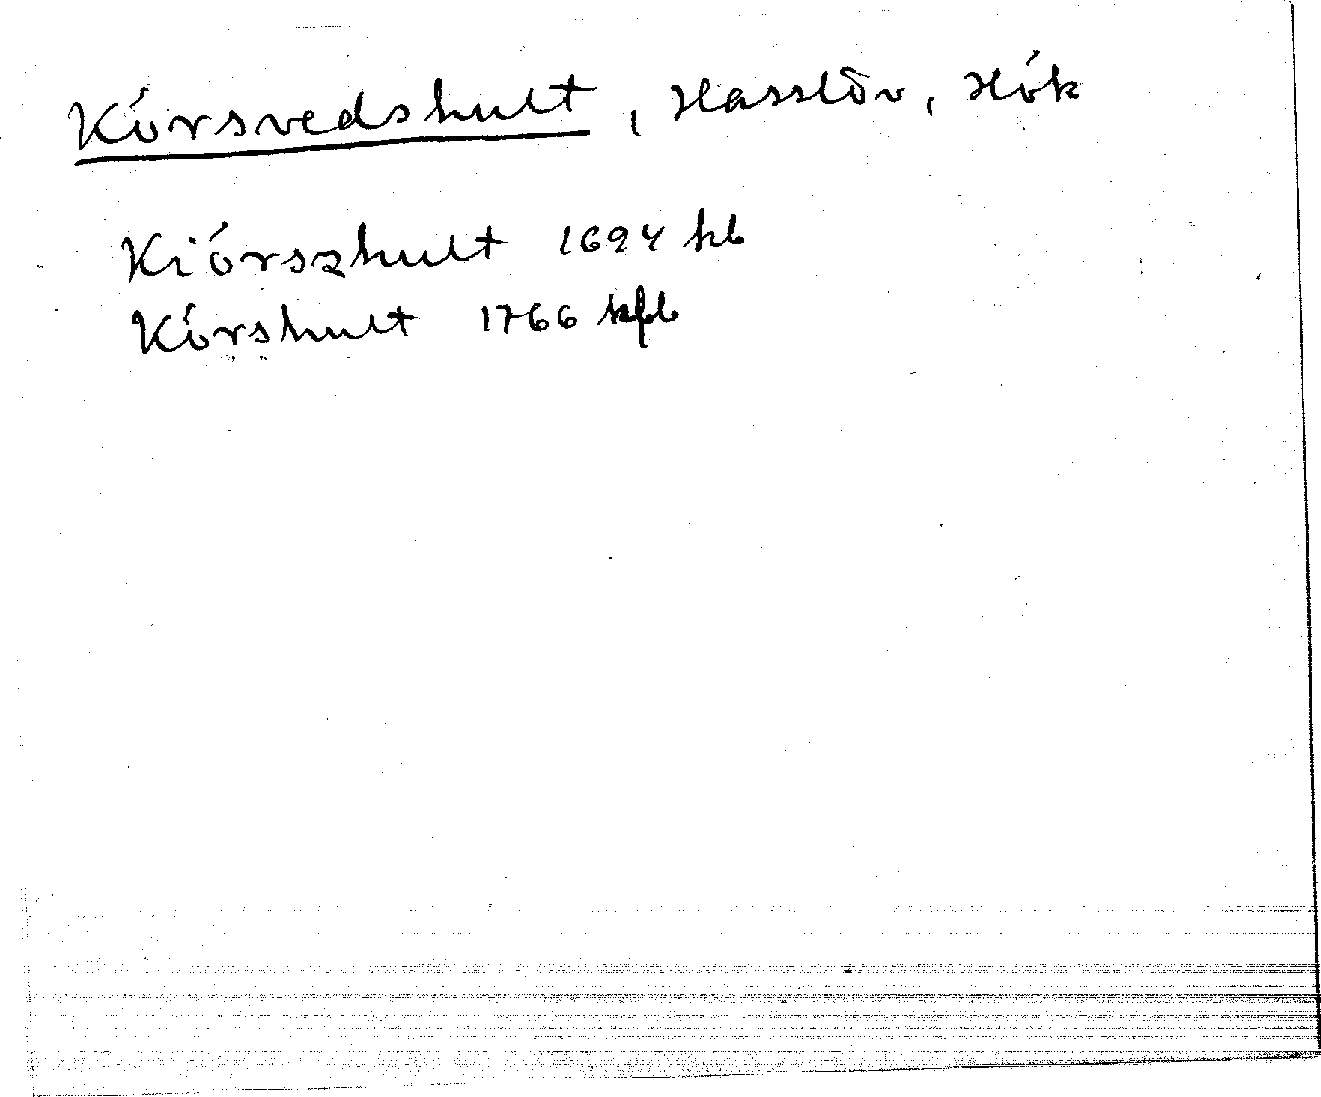 Körsvedshult, Hasslöv, Hök
Kiörszhult 1694 hb
Körshult 1766 kfb